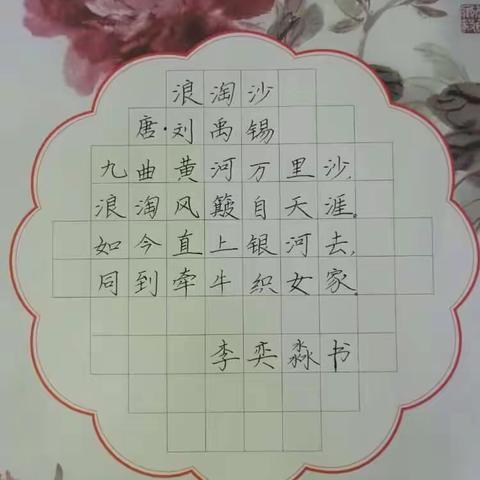 浪淘沙
唐·刘禹锡
九曲黄河万里沙,
浪淘风簸自天涯。
如今直上银河去,
同到牵牛织女家。
李奕淼书